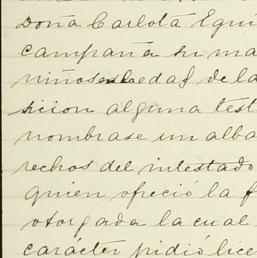 Doña Carlota Equi
campaña su ma
niños la edad de la
sicion alguna test
nombrase un alba
rechos del intestado
quien ofreció la f
otorgada la cual
carácter pidió lice